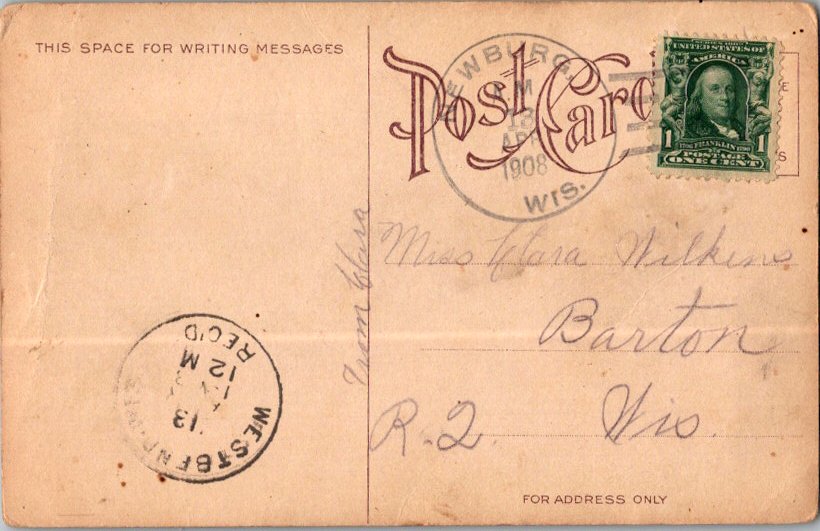 THIS SPACE FOR WRITING MESSAGES
Post Card
NEWBURG,
13
APR
1908
WIS.
UNITED STATES OF
AMERICA
1 1706 FRANKLIN 1790 1
POSTAGE
ONE CENT
From Clara
Miss Clara Wilkins
Barton
R.2. Wis.
WEST BEND
13
12 M
REC'D
FOR ADDRESS ONLY